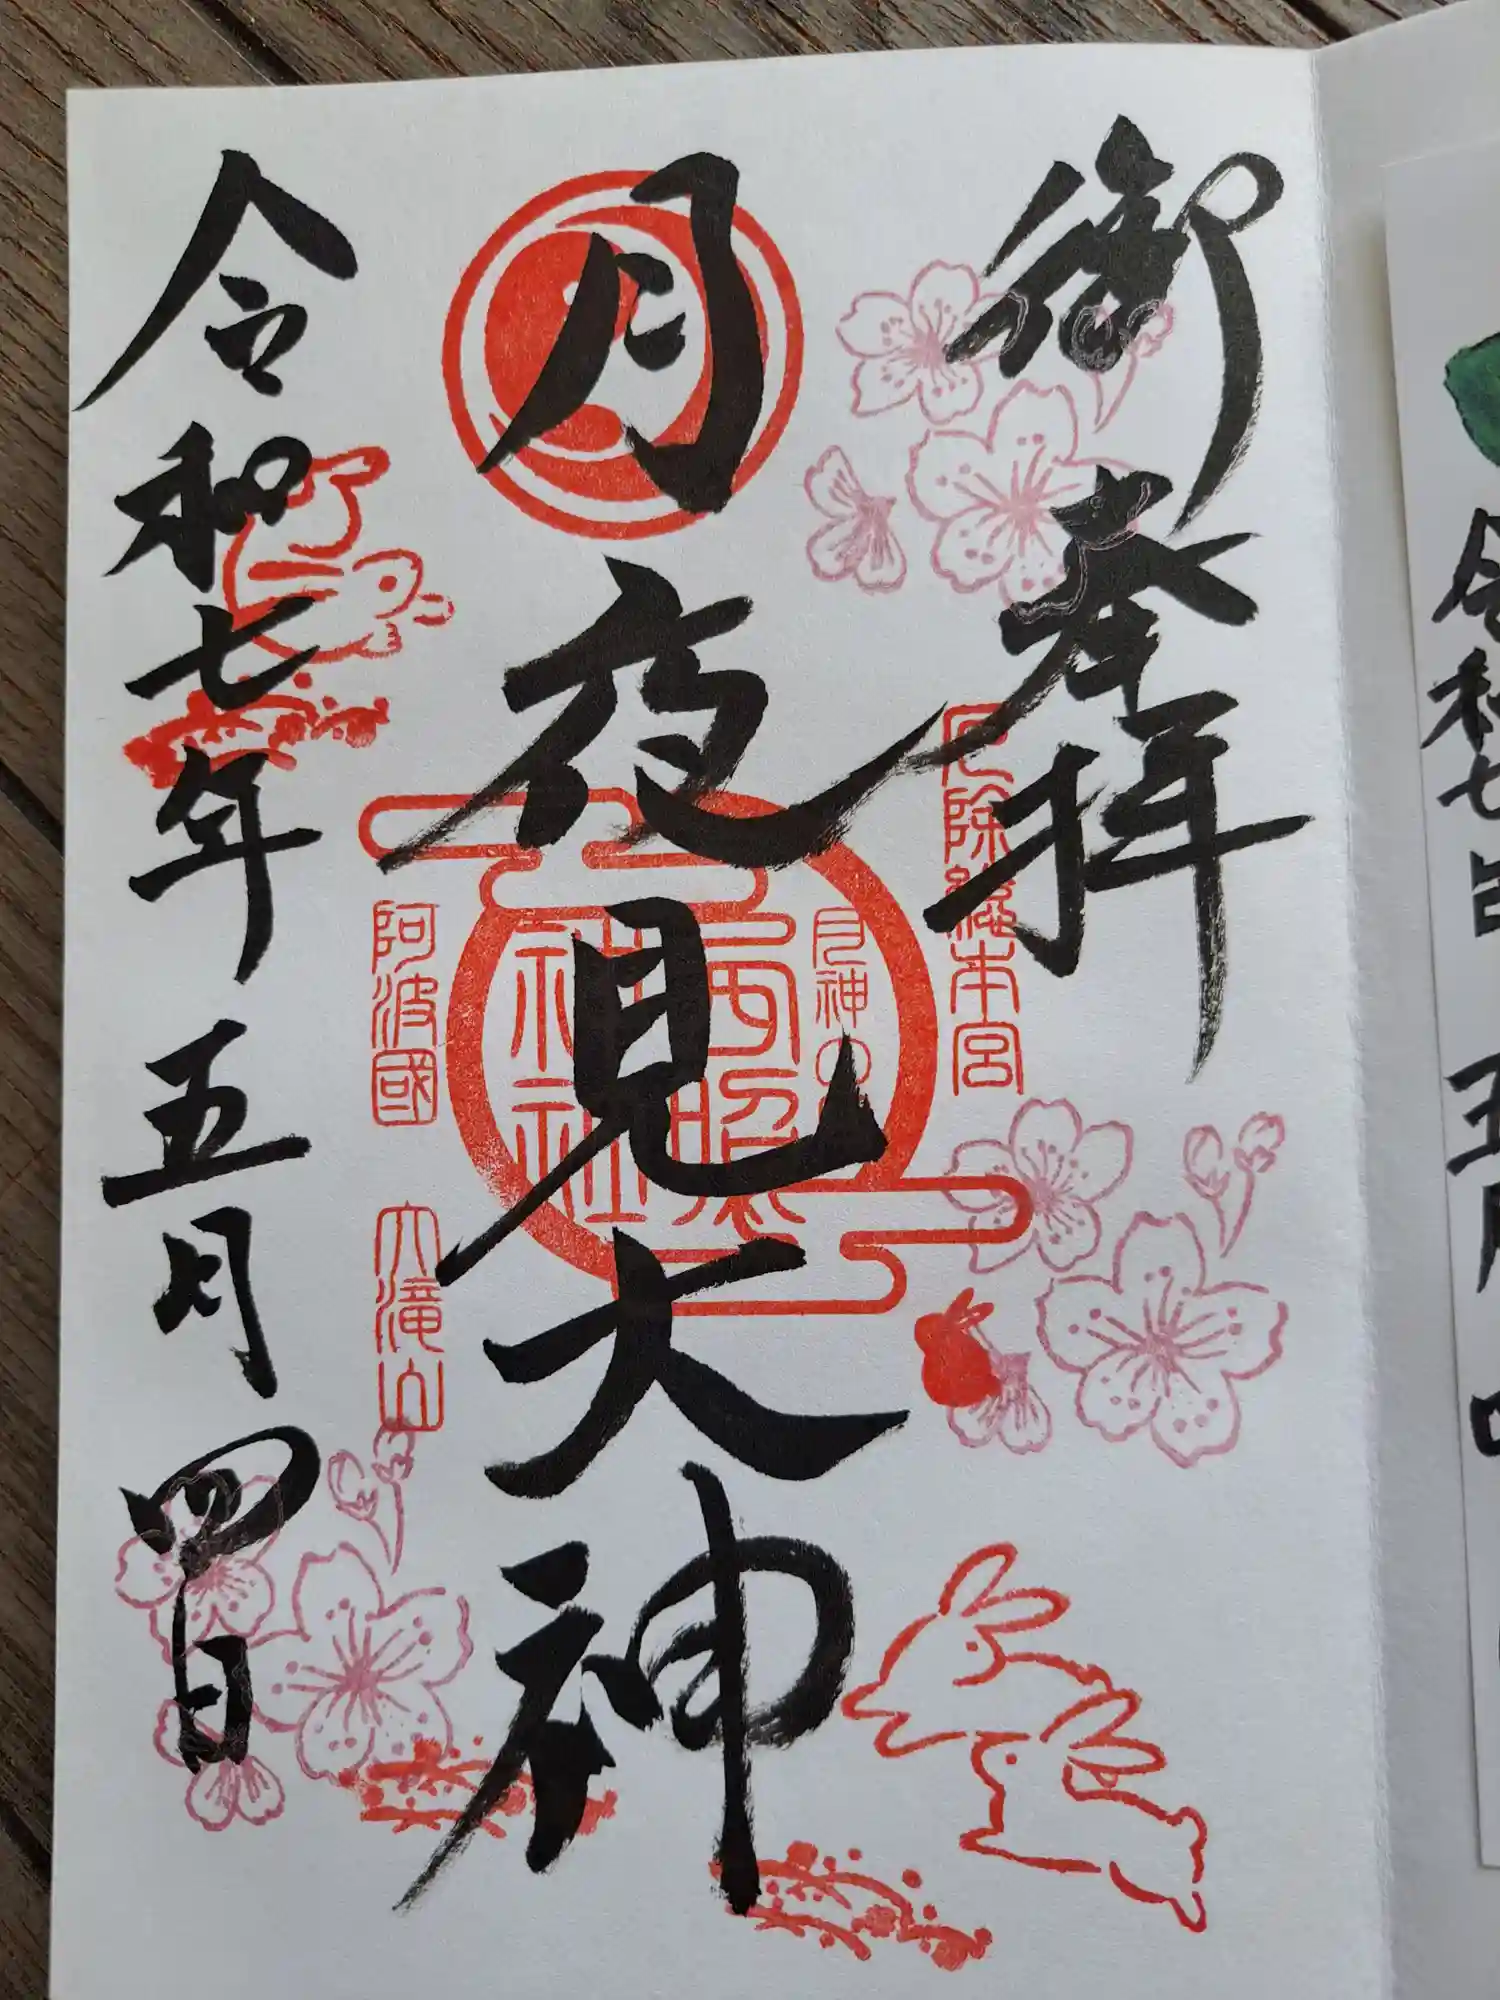 令和七年五月
御奉拝
厄除總本宮
月夜見大神
月神の
西照
神社
阿波國
大滝山
令和七年五月四日